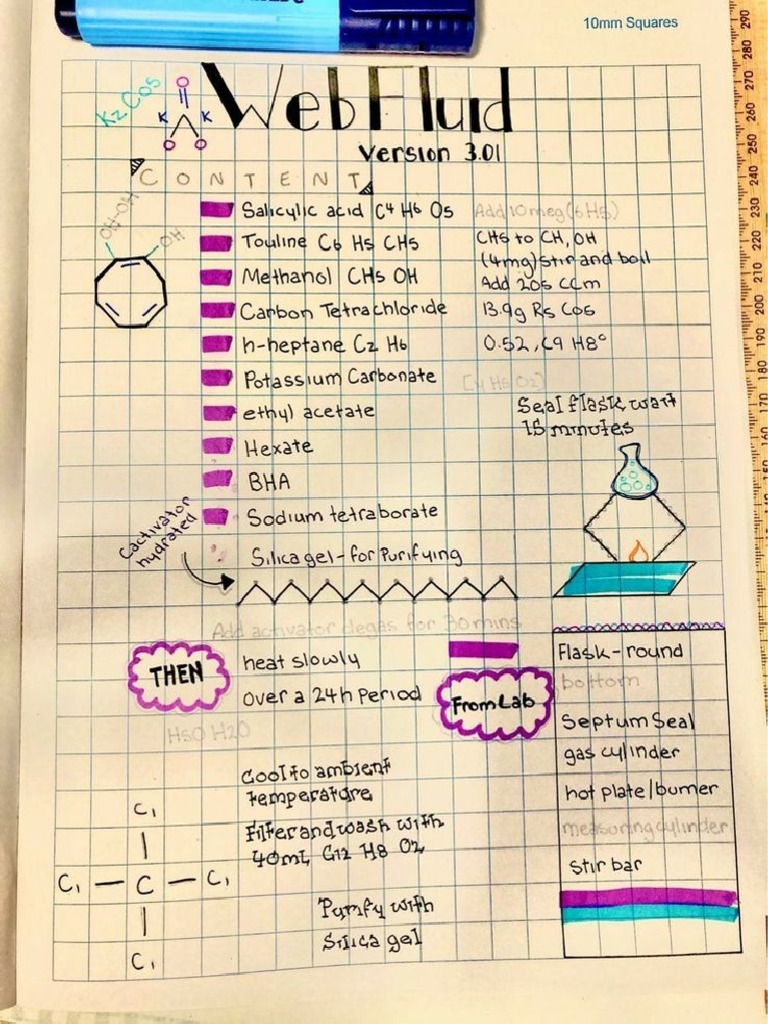 10mm Squares
K2COs
O
K K
O O
WebFluid
Version 3.01
CONTENT
Salicylic acid C4 H6 Os Add 10meg(6H5)
Touline C6 H5 CH5 CH5 to CH, OH
(4mg) stir and boil
Methanol CH5 OH Add 205 CCm
Carbon Tetrachloride 13.9g R5 Co6
h-heptane C2 H6 0.52, C9 H8°
Potassium Carbonate [4 H5 O2]
ethyl acetate Seal flask wait
15 minutes
Hexate
BHA
Sodium tetraborate
Cactivator
hydrated
Silica gel - for Purifying
Add activator degas for 30 mins
THEN
heat slowly
over a 24h Period
From Lab
Flask-round
bottom
Septum Seal
gas cylinder
hot plate/burner
measuring cylinder
stir bar
HSO H2O
Cool to ambient
temperature
Filter and wash with
40mL G12 H8 O2
Purify with
Silica gel
C1
C1 — C — C1
C1
OH-OH
OH
290
280
270
260
250
240
230
220
210
200
190
180
170
160
150